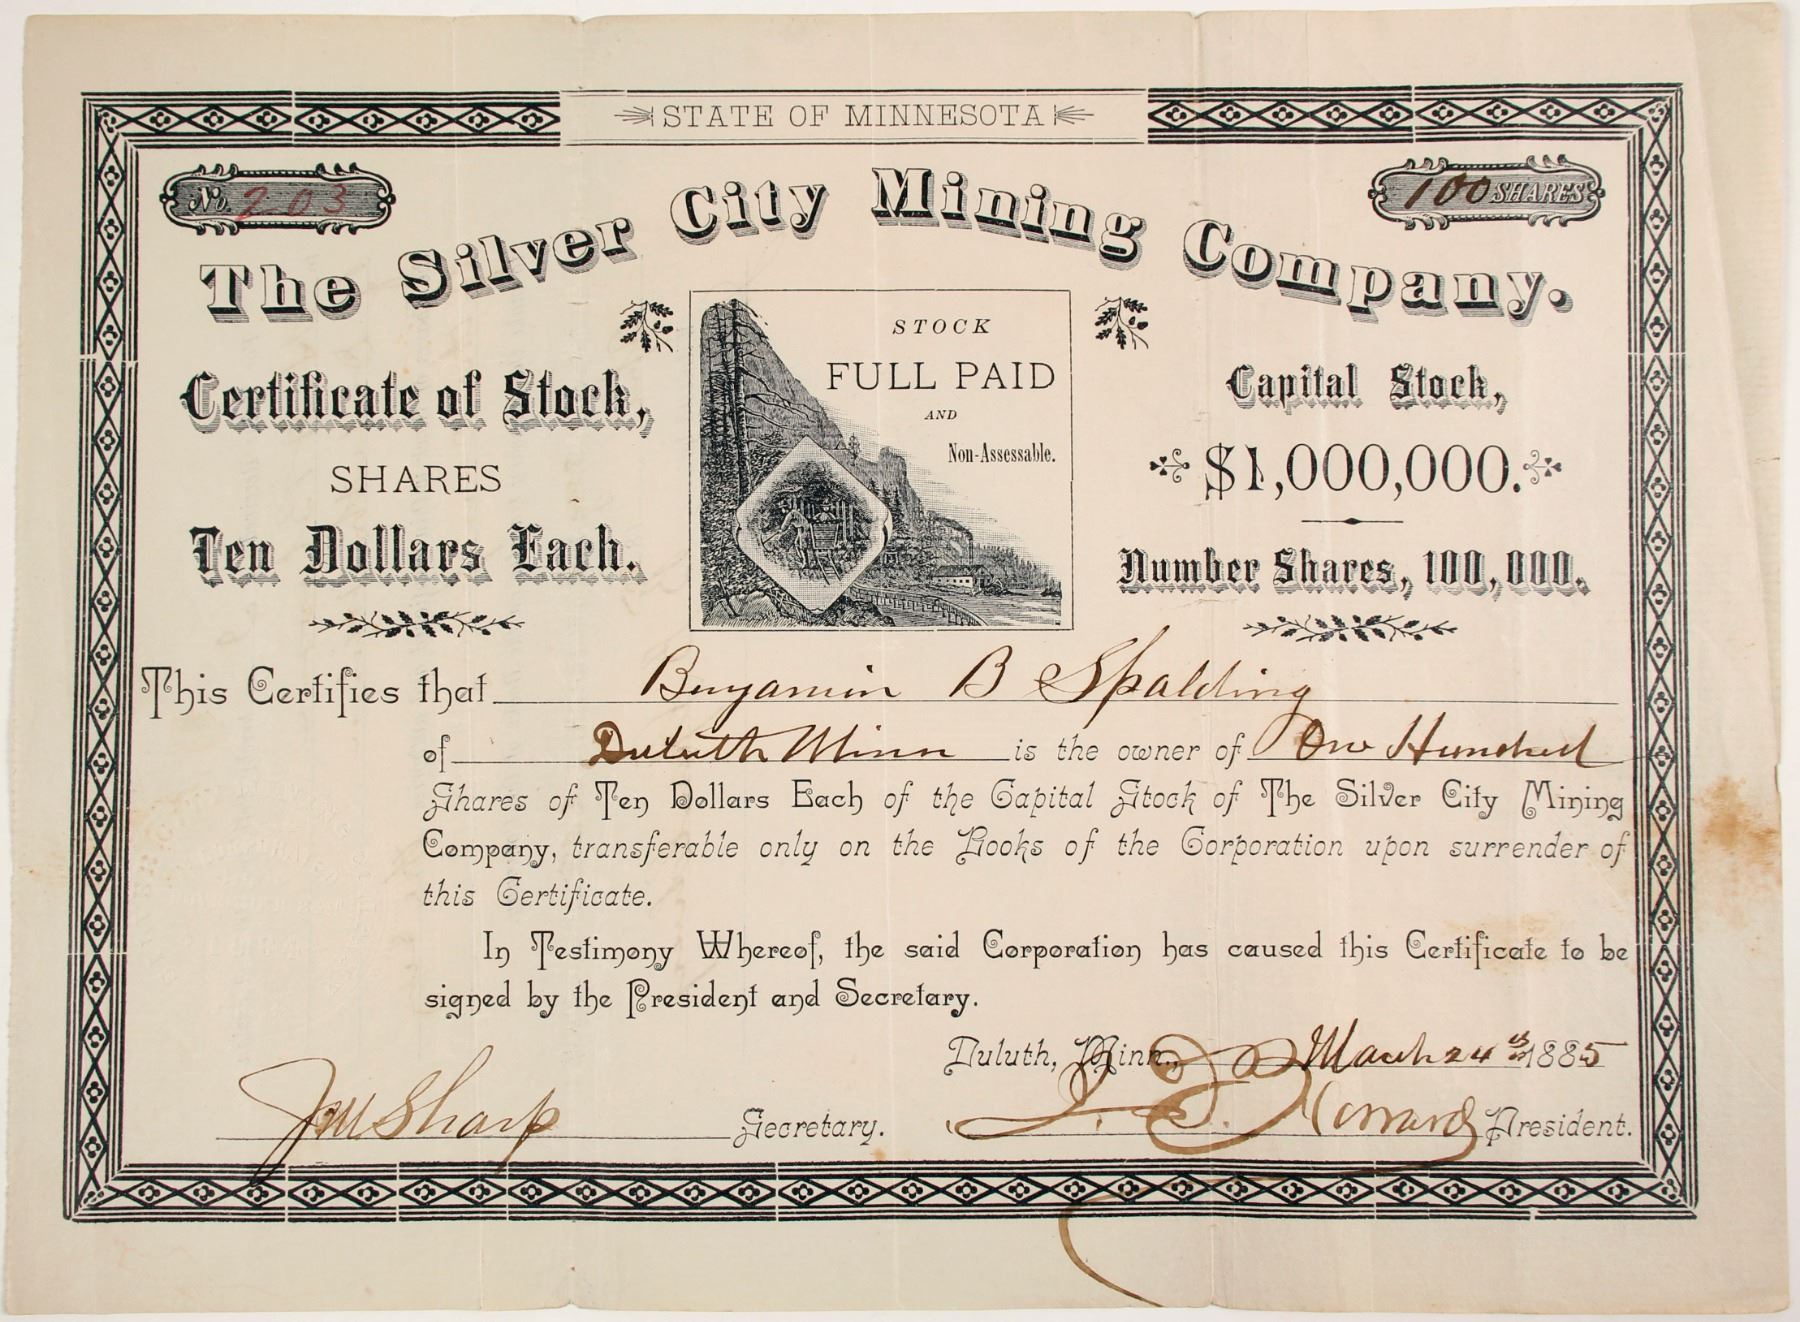 STATE OF MINNESOTA
No. 203
100 SHARES
The Silver City Mining Company.
Certificate of Stock,
SHARES
Ten Dollars Each.
STOCK
FULL PAID
AND
Non-Assessable.
Capital Stock,
$1,000,000.
Number Shares, 100,000.
This Certifies that Benjamin B Spalding
of Duluth Minn is the owner of One Hundred
Shares of Ten Dollars Each of the Capital Stock of The Silver City Mining
Company, transferable only on the Books of the Corporation upon surrender of
this Certificate.
In Testimony Whereof, the said Corporation has caused this Certificate to be
signed by the President and Secretary.
Duluth, Minn., March 24th 1885
Sharp Secretary.
President.